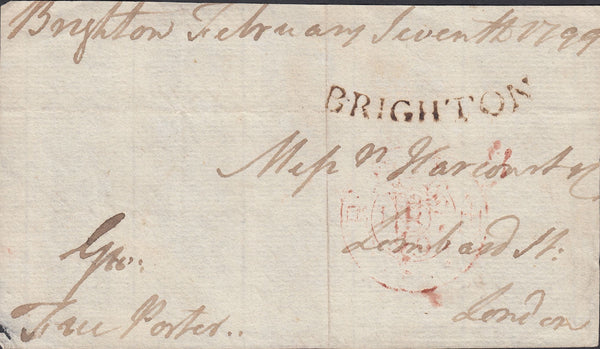 Brighton February Seventh 1799
BRIGHTON
Messrs Harcourt & Co
Lombard St:
London
Geo:
Free Porter..